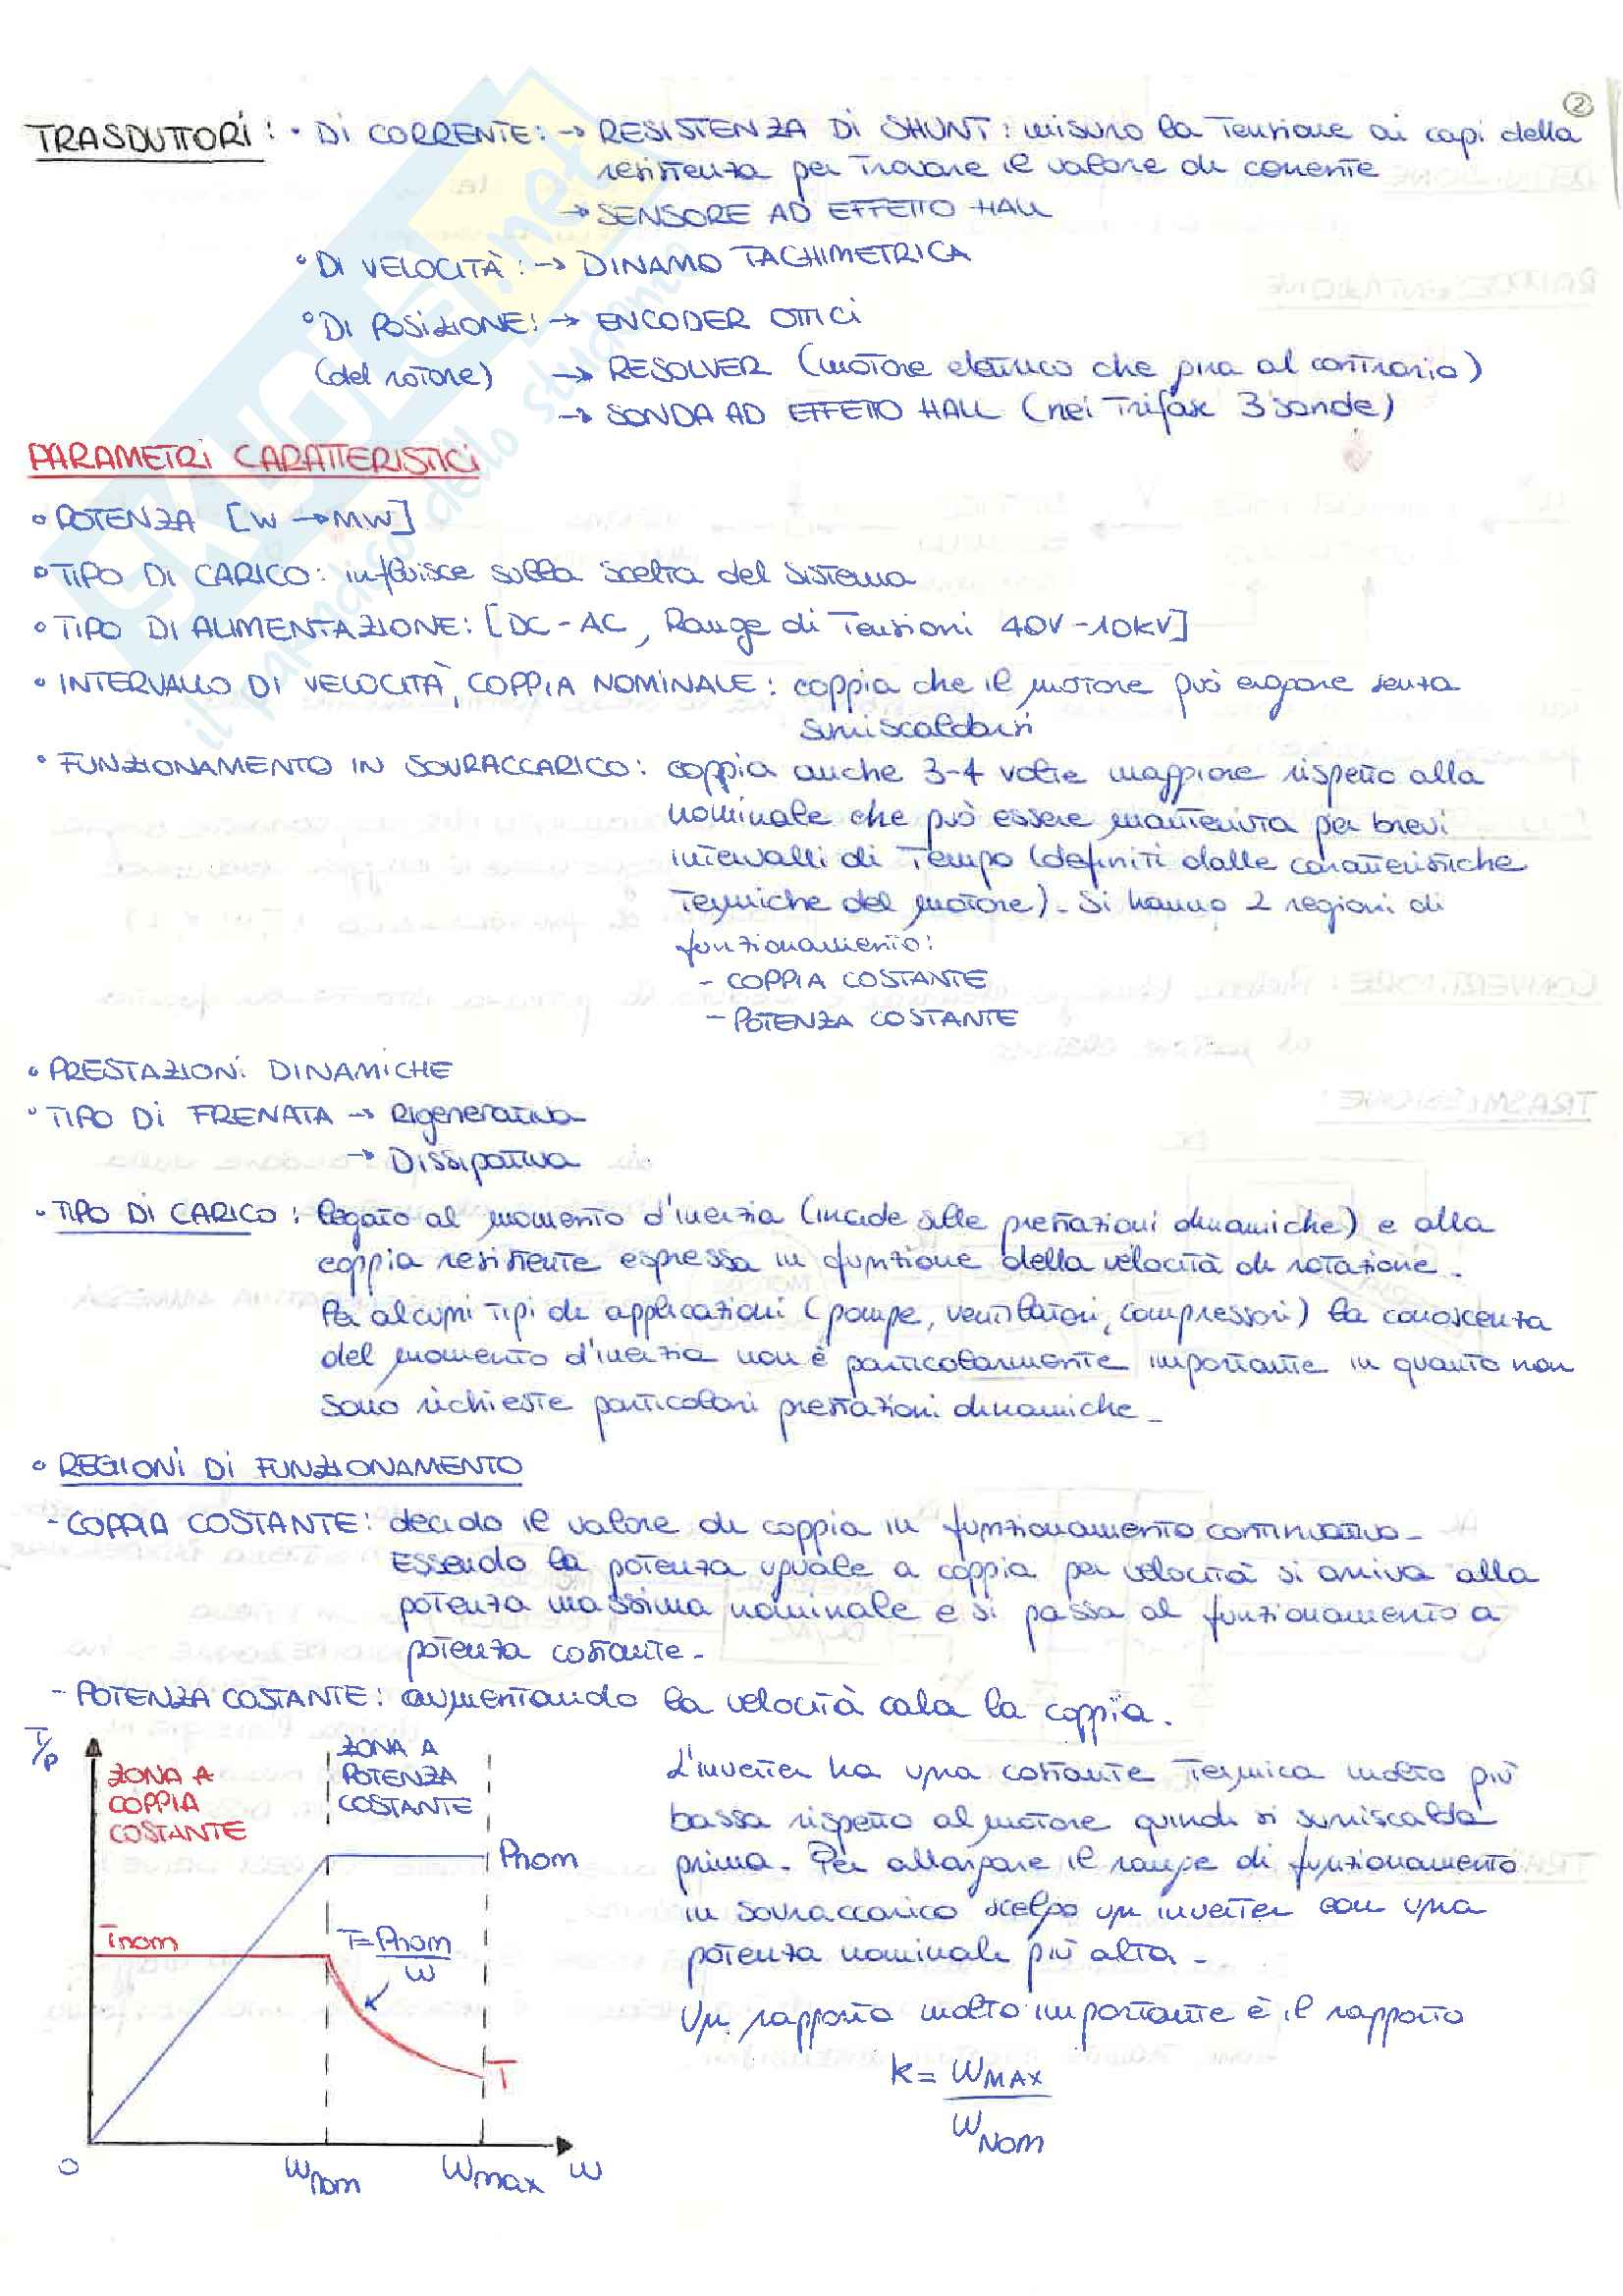 2
TRASDUTTORI: • DI CORRENTE: → RESISTENZA DI SHUNT: misuro la tensione ai capi della
resistenza per trovare il valore di corrente
→ SENSORE AD EFFETTO HALL
• DI VELOCITÀ: → DINAMO TACHIMETRICA
• DI POSIZIONE: → ENCODER OTTICI
(del rotore) → RESOLVER (motore elettrico che gira al contrario)
→ SONDA AD EFFETTO HALL (nei trifase 3 sonde)
PARAMETRI CARATTERISTICI
• POTENZA [W → MW]
• TIPO DI CARICO: influisce sulla scelta del sistema
• TIPO DI ALIMENTAZIONE: [DC - AC, Range di tensioni 40V - 10kV]
• INTERVALLO DI VELOCITÀ, COPPIA NOMINALE: coppia che il motore può erogare senza
surriscaldarsi
• FUNZIONAMENTO IN SOVRACCARICO: coppia anche 3-4 volte maggiore rispetto alla
nominale che può essere mantenuta per brevi
intervalli di tempo (definiti dalle caratteristiche
termiche del motore). Si hanno 2 regioni di
funzionamento:
- COPPIA COSTANTE
- POTENZA COSTANTE
• PRESTAZIONI DINAMICHE
• TIPO DI FRENATA → Rigenerativa
→ Dissipativa
• TIPO DI CARICO: legato al momento d'inerzia (incide sulle prestazioni dinamiche) e alla
coppia resistente espressa in funzione della velocità di rotazione.
Per alcuni tipi di applicazioni (pompe, ventilatori, compressori) la conoscenza
del momento d'inerzia non è particolarmente importante in quanto non
sono richieste particolari prestazioni dinamiche.
• REGIONI DI FUNZIONAMENTO
- COPPIA COSTANTE: decido il valore di coppia in funzionamento continuativo.
Essendo la potenza uguale a coppia per velocità si arriva alla
potenza massima nominale e si passa al funzionamento a
potenza costante.
- POTENZA COSTANTE: aumentando la velocità cala la coppia.
T/P
ZONA A
COPPIA
COSTANTE
ZONA A
POTENZA
COSTANTE
Pnom
Tnom
T = Pnom
W
T
0
Wnom
Wmax
W
L'inverter ha una costante termica molto più
bassa rispetto al motore quindi si surriscalda
prima. Per allargare il range di funzionamento
in sovraccarico scelgo un inverter con una
potenza nominale più alta.
Un rapporto molto importante è il rapporto
k = WMAX
WNOM
SKUOLA.net
il paradiso dello studente